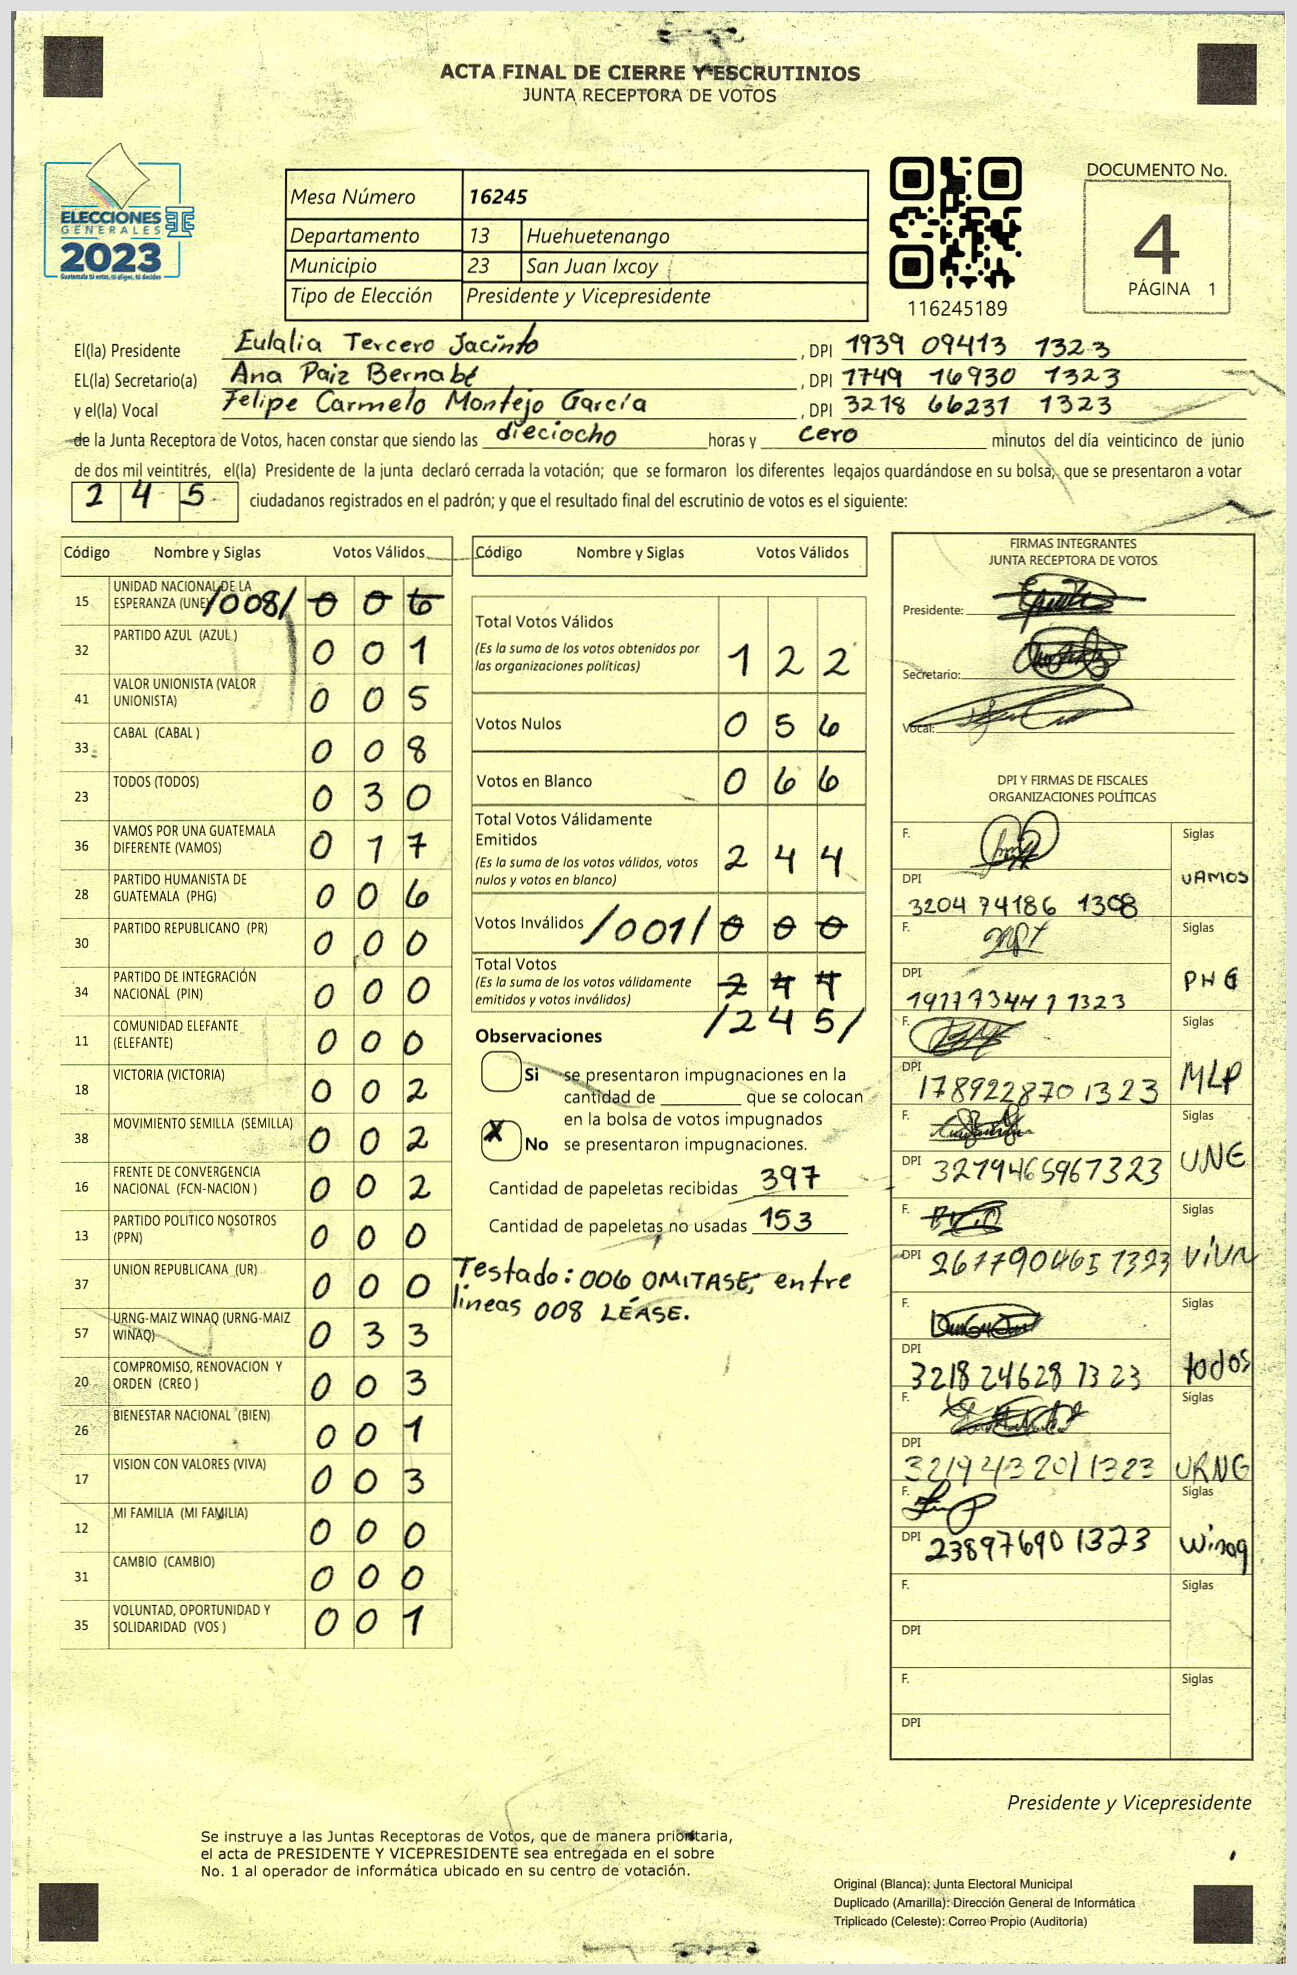 ACTA FINAL DE CIERRE Y ESCRUTINIOS
JUNTA RECEPTORA DE VOTOS
ELECCIONES
GENERALES
2023
Guatemala tú votas, tú eliges, tú decides
Mesa Número 16245
Departamento 13 Huehuetenango
Municipio 23 San Juan Ixcoy
Tipo de Elección Presidente y Vicepresidente
116245189
DOCUMENTO No.
4
PÁGINA 1
El(la) Presidente Eulalia Tercero Jacinto , DPI 1939 09413 1323
EL(la) Secretario(a) Ana Paiz Bernabé , DPI 1749 16930 1323
y el(la) Vocal Felipe Carmelo Montejo García , DPI 3218 66231 1323
de la Junta Receptora de Votos, hacen constar que siendo las dieciocho horas y cero minutos del día veinticinco de junio
de dos mil veintitrés, el(la) Presidente de la junta declaró cerrada la votación; que se formaron los diferentes legajos quardándose en su bolsa, que se presentaron a votar
2 4 5 ciudadanos registrados en el padrón; y que el resultado final del escrutinio de votos es el siguiente:
Código Nombre y Siglas Votos Válidos
15 UNIDAD NACIONAL DE LA ESPERANZA (UNE) /008/ 0 0 6
32 PARTIDO AZUL (AZUL ) 0 0 1
41 VALOR UNIONISTA (VALOR UNIONISTA) 0 0 5
33 CABAL (CABAL ) 0 0 8
23 TODOS (TODOS) 0 3 0
36 VAMOS POR UNA GUATEMALA DIFERENTE (VAMOS) 0 1 7
28 PARTIDO HUMANISTA DE GUATEMALA (PHG) 0 0 6
30 PARTIDO REPUBLICANO (PR) 0 0 0
34 PARTIDO DE INTEGRACIÓN NACIONAL (PIN) 0 0 0
11 COMUNIDAD ELEFANTE (ELEFANTE) 0 0 0
18 VICTORIA (VICTORIA) 0 0 2
38 MOVIMIENTO SEMILLA (SEMILLA) 0 0 2
16 FRENTE DE CONVERGENCIA NACIONAL (FCN-NACION ) 0 0 2
13 PARTIDO POLITICO NOSOTROS (PPN) 0 0 0
37 UNION REPUBLICANA (UR) 0 0 0
57 URNG-MAIZ WINAQ (URNG-MAIZ WINAQ) 0 3 3
20 COMPROMISO, RENOVACION Y ORDEN (CREO ) 0 0 3
26 BIENESTAR NACIONAL (BIEN) 0 0 1
17 VISION CON VALORES (VIVA) 0 0 3
12 MI FAMILIA (MI FAMILIA) 0 0 0
31 CAMBIO (CAMBIO) 0 0 0
35 VOLUNTAD, OPORTUNIDAD Y SOLIDARIDAD (VOS ) 0 0 1
Código Nombre y Siglas Votos Válidos
Total Votos Válidos
(Es la suma de los votos obtenidos por
las organizaciones políticas) 1 2 2
Votos Nulos 0 5 6
Votos en Blanco 0 6 6
Total Votos Válidamente
Emitidos
(Es la suma de los votos válidos, votos
nulos y votos en blanco) 2 4 4
Votos Inválidos /001/ 0 0 0
Total Votos
(Es la suma de los votos válidamente
emitidos y votos inválidos) 2 4 4
/2 4 5/
Observaciones
Si se presentaron impugnaciones en la
cantidad de ________ que se colocan
en la bolsa de votos impugnados
X No se presentaron impugnaciones.
Cantidad de papeletas recibidas 397
Cantidad de papeletas no usadas 153
Testado: 006 OMITASE; entre
lineas 008 LÉASE.
FIRMAS INTEGRANTES
JUNTA RECEPTORA DE VOTOS
Presidente:
Secretario:
Vocal:
DPI Y FIRMAS DE FISCALES
ORGANIZACIONES POLÍTICAS
F. Siglas
DPI 3204 74186 1308 VAMOS
F. Siglas
DPI 191773447 1323 PHG
F. Siglas
DPI 178922870 1323 MLP
F. Siglas
DPI 3279465961323 UNE
F. Siglas
DPI 267790465 1323 VIVA
F. Siglas
DPI 3218 24628 13 23 todos
F. Siglas
DPI 321943201 1323 URNG
F. Siglas
DPI 238976901323 Winaq
F. Siglas
DPI
F. Siglas
DPI
Presidente y Vicepresidente
Se instruye a las Juntas Receptoras de Votos, que de manera prioritaria,
el acta de PRESIDENTE Y VICEPRESIDENTE sea entregada en el sobre
No. 1 al operador de informática ubicado en su centro de votación.
Original (Blanca): Junta Electoral Municipal
Duplicado (Amarilla): Dirección General de Informática
Triplicado (Celeste): Correo Propio (Auditoría)